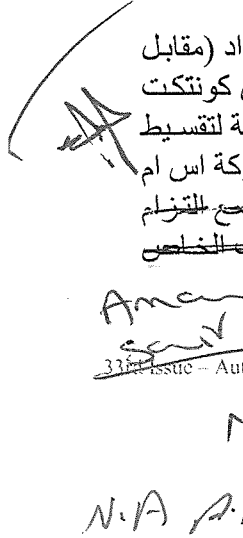 اد (مقابل
كونتكت
ة لتقسيط
كة اس ام
مع التزام
الخاص
Aman
33rd Issue – Au
N.A A.